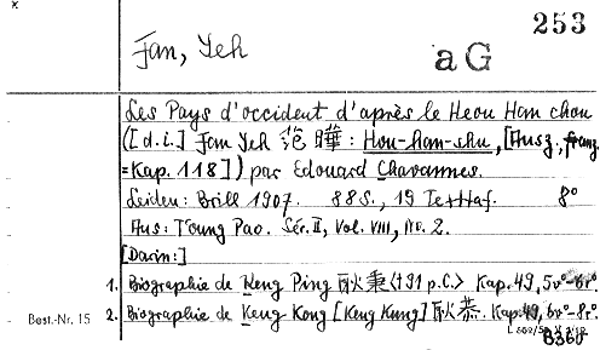 x
253
Fan, Yeh
a G
Les Pays d'occident d'après le Heou Han chou
([d.i.] Fan Yeh 范曄: Hou-han-shu, [Ausz., franz.
=Kap. 118]) par Edouard Chavannes.
Leiden: Brill 1907. 88 S., 19 Texttaf. 8°
Aus: T'oung Pao. Sér. II, Vol. VIII, No. 2.
[Darin:]
1. Biographie de Keng Ping 耿秉 (†91 p.C.) Kap. 49, 5v°-6r°.
2. Biographie de Keng Kong [Keng Kung] 耿恭. Kap. 49, 6v°-8r°.
Best.-Nr. 15